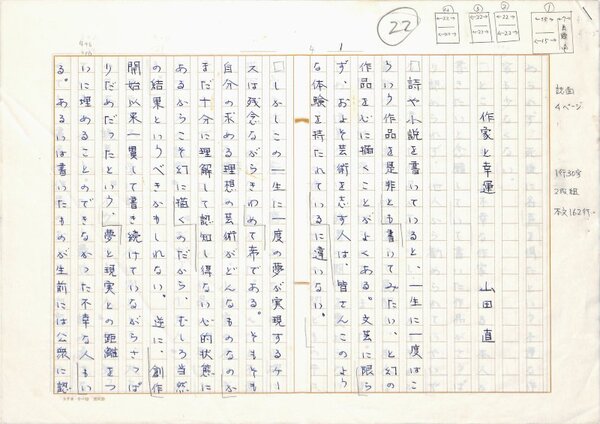 22
4
1
作家と幸運
山田 直
□詩や小説を書いていると、一生に一度はこ
ういう作品を是非とも書いてみたい、と幻の
作品を心に描くことがよくある。文芸に限ら
ず、およそ芸術を志す人は、皆さんこのよう
な体験を持たれているに違いない。
□しかしこの一生に一度の夢が実現するケー
スは残念ながらきわめて希である。そもそも
自分の求める理想の芸術がどんなものなのか
まだ十分に理解して認知し得ない心的状態に
あるからこそ幻に描くのだから、むしろ当然
の結果というべきかもしれない。逆に、創作
開始以来一貫して書き続けていながらさっぱ
りだめだったという、夢と現実との距離をつ
いに埋めることのできなかった不幸な人もい
る。あるいは書いたものが生前には公衆に認
誌面
4ページ
1行30字
2段組
本文162行